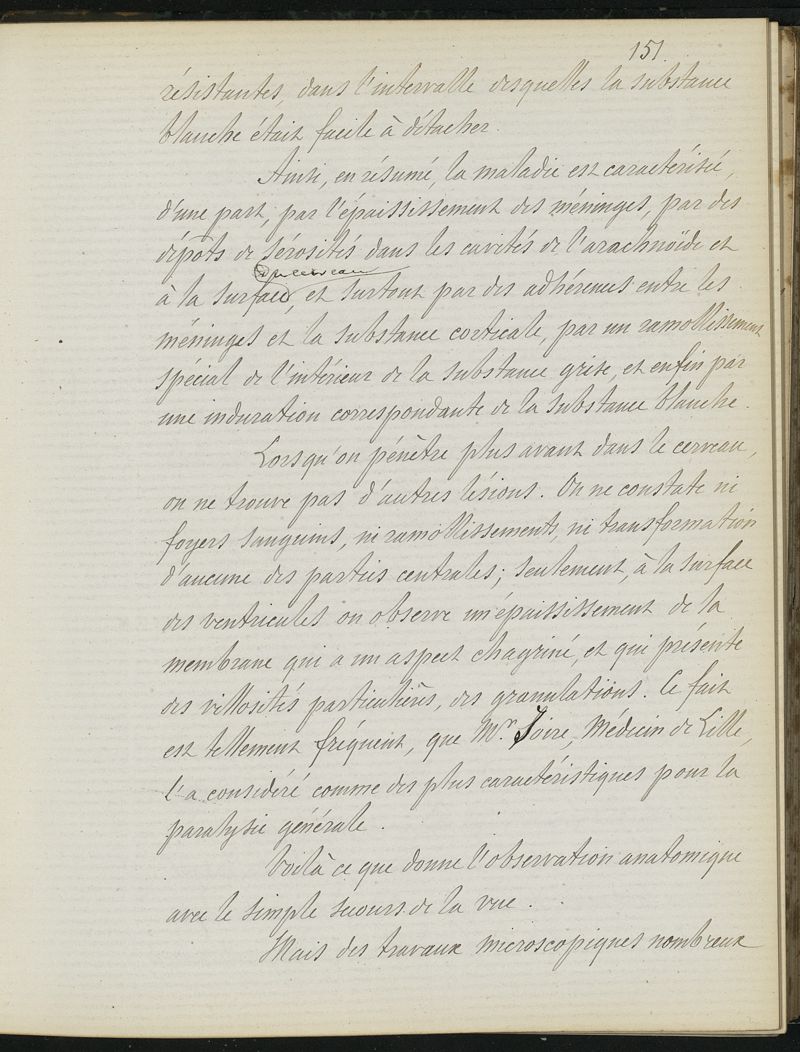 151
résistantes, dans l'intervalle desquelles la substance
blanche était facile à détacher.
Ainsi, en résumé, la maladie est caractérisée,
d'une part, par l'épaississement des méninges, par des
dépôts de sérosités dans les cavités de l'arachnoïde et
du cerveau
à la surface, et surtout par des adhérences entre les
méninges et la substance corticale, par un ramollissement
spécial de l'intérieur de la substance grise, et enfin par
une induration correspondante de la substance blanche.
Lorsqu'on pénètre plus avant dans le cerveau,
on ne trouve pas d'autres lésions. On ne constate ni
foyers sanguins, ni ramollissements, ni transformation
d'aucune des parties centrales; seulement, à la surface
des ventricules on observe un épaississement de la
membrane qui a un aspect chagriné, et qui présente
des villosités particulières, des granulations. Ce fait
est tellement fréquent, que Mr. Joire, Médecin de Lille,
l'a considéré comme des plus caractéristiques pour la
paralysie générale.
Voilà ce que donne l'observation anatomique
avec le simple secours de la vue.
Mais des travaux microscopiques nombreux